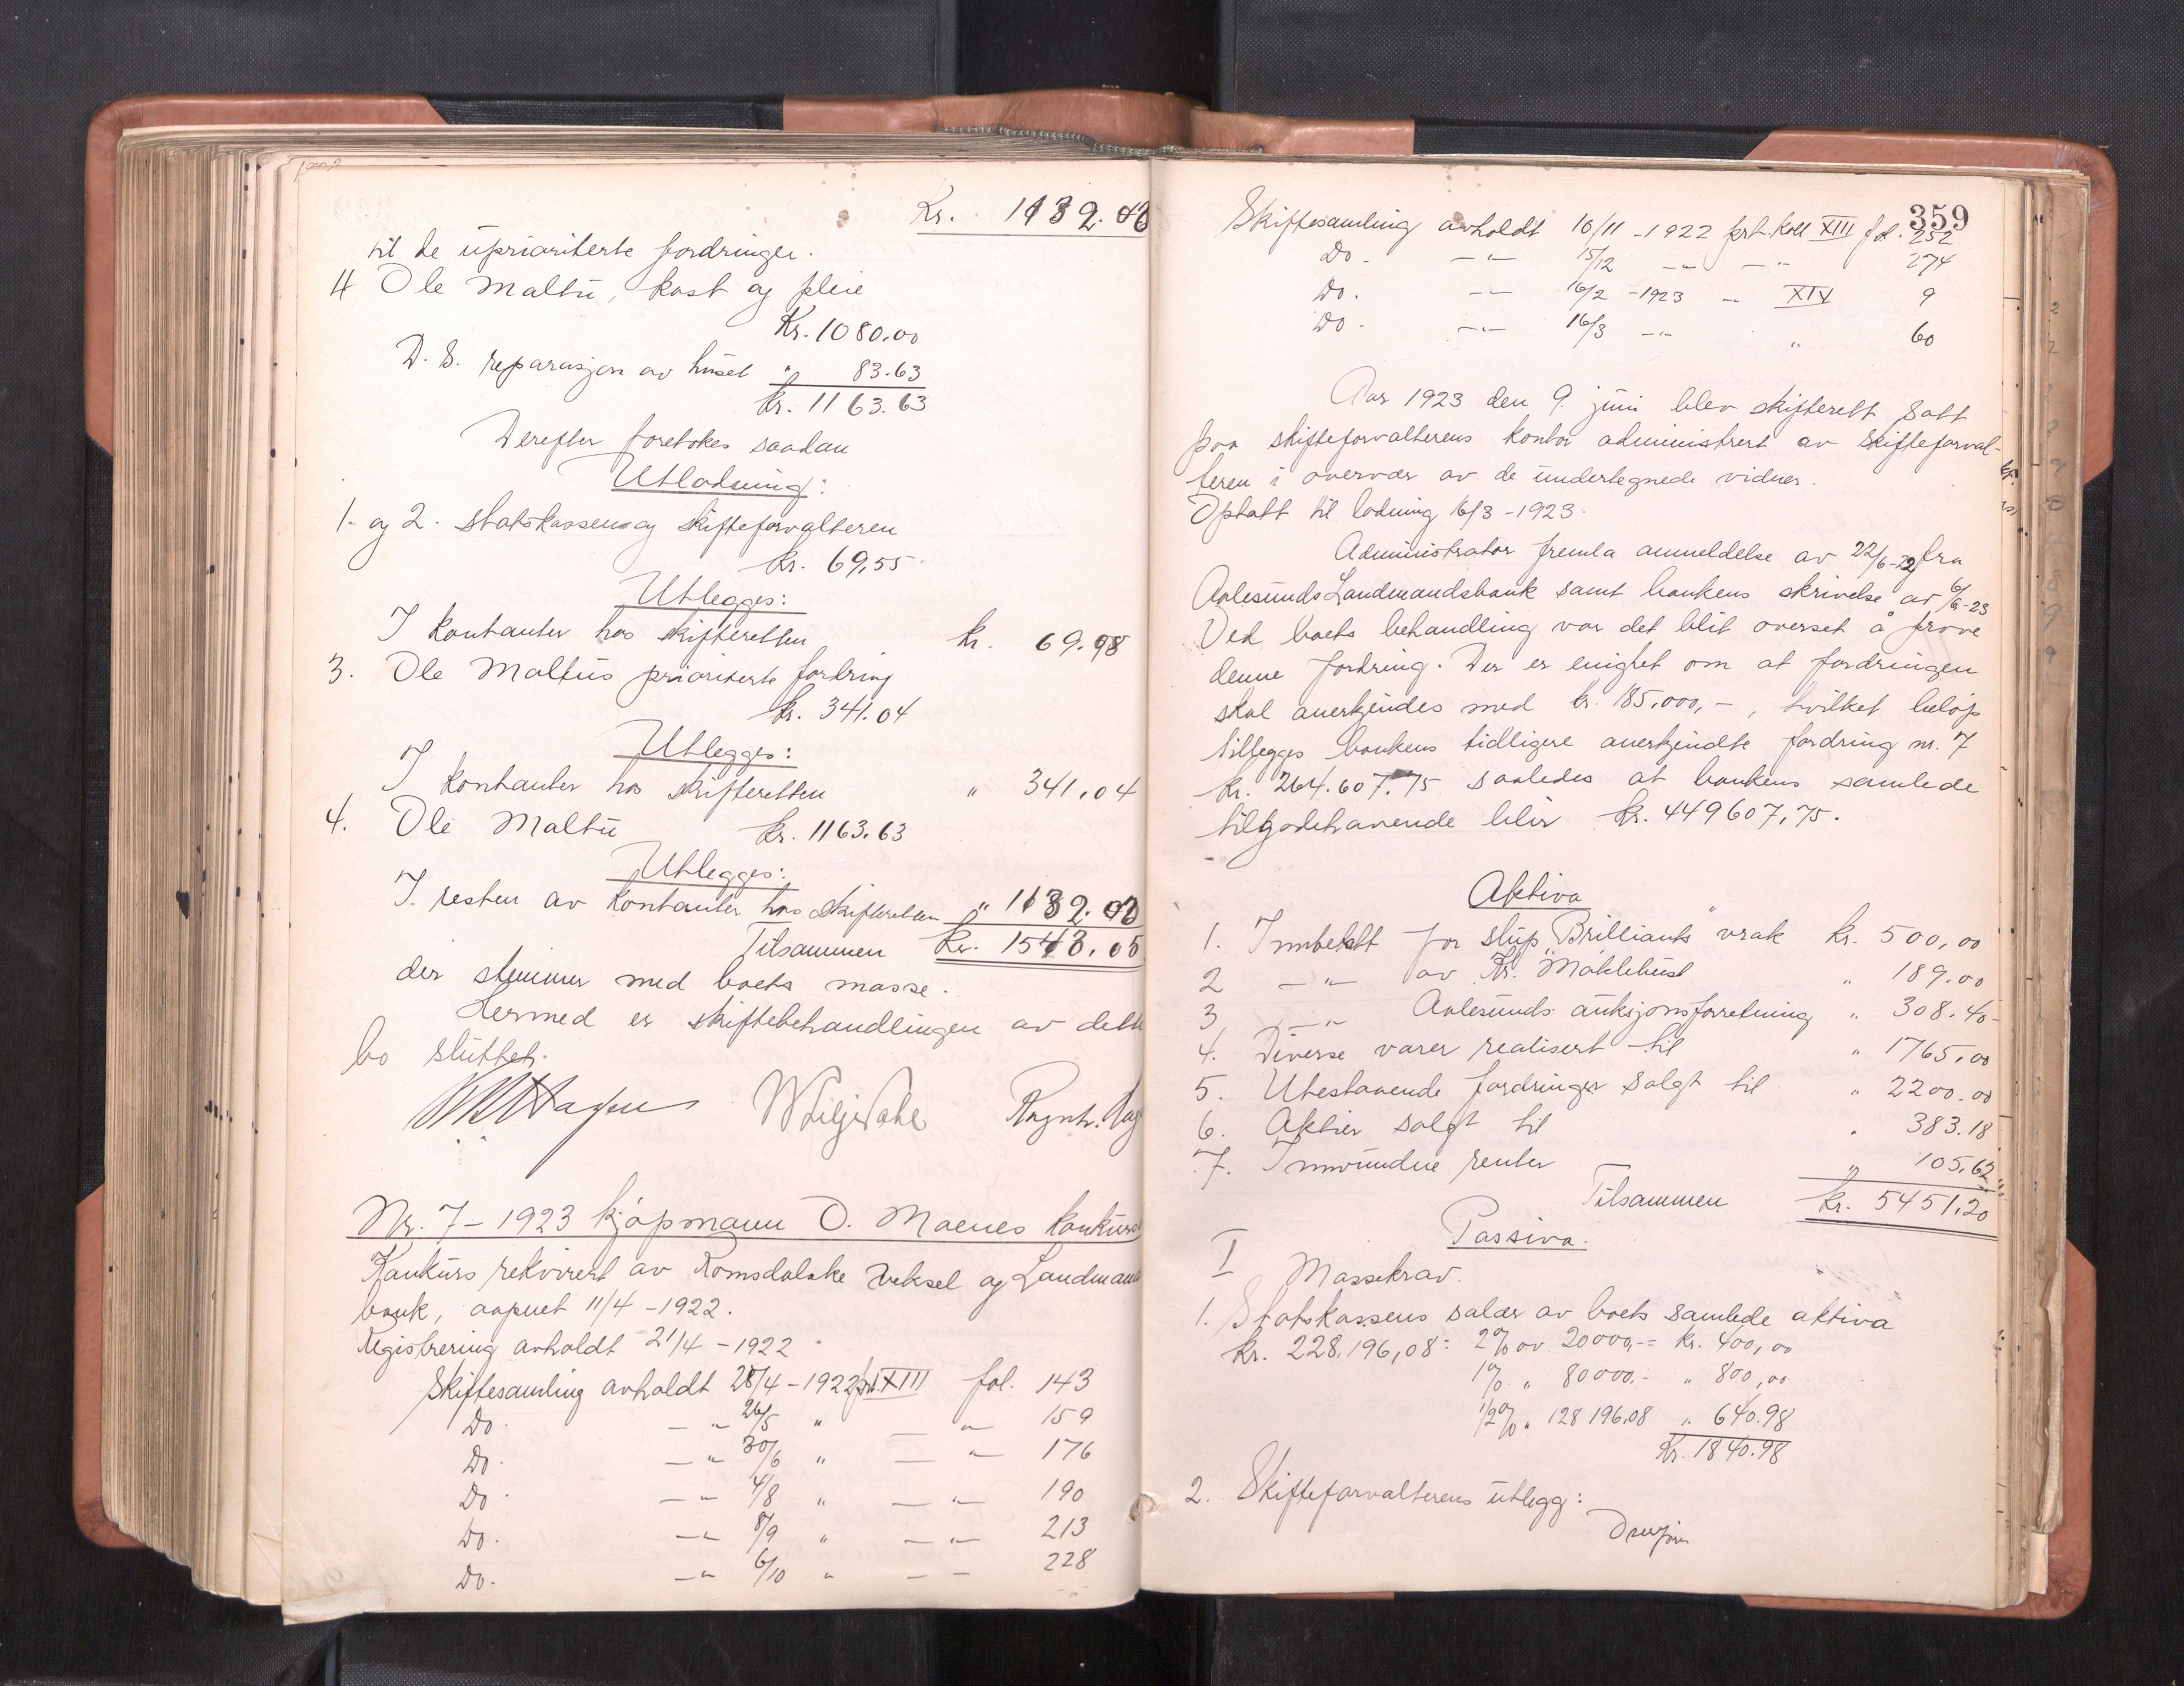 Kr. 1132.06
til de uprioriterte fordringer.
4 Ole Maltu, kost og pleie
Kr. 1080.00
D. S. reparasjon av huset " 83.63
Kr. 1163.63
Derefter foretokes saadan
Utlodning:
1. og 2. Statskassen og skifteforvalteren
kr. 69,55
Utlegges:
I kontanter hos skifteretten kr. 69.98
3. Ole Maltus prioriterte fordring
kr. 341.04
Utlegges:
I kontanter hos skifteretten " 341,04
4. Ole Maltu kr. 1163.63
Utlegges:
I resten av kontanter hos skifteretten " 1132.03
Tilsammen kr. 1543.05
der stemmer med boets masse.
Hermed er skiftebehandlingen av dette
bo sluttet.
Nr. 7 - 1923 kjøpmann O. Moenes konkurs
Konkurs rekvirert av Romsdalske Veksel og Landmands
bank, aapnet 11/4 - 1922.
Registrering avholdt 21/4 - 1922
Skiftesamling avholdt 28/4 - 1922 prt. XIII fol. 143
Do. — " 26/5 " — " — 159
Do. — " 30/6 " — " — 176
Do. — " — 4/8 " — " — 190
Do. — " — 8/9 " — " — 213
Do. — " — 6/10 " — — 228
359
Skiftesamling avholdt 10/11 - 1922 prt. koll XIII fol. 252
Do. — " — 15/12 — " — — " — 274
Do. — " — 16/2 - 1923 — " — XIV 9
Do. — " — 16/3 — " — " 60
Aar 1923 den 9. juni blev skifterett satt
paa skifteforvalterens kontor administrert av skifteforval-
teren i overvær av de undertegnede vidner.
Optatt til lodning 16/3 - 1923.
Administrator fremla anmeldelse av 22/6-22 fra
Aalesunds Landmandsbank samt bankens skrivelse av 6/6-23
Ved boets behandling var det blit overset å prøve
denne fordring. Der er enighet om at fordringen
skal anerkjendes med kr. 185.000,-, hvilket beløp
tillegges bankens tidligere anerkjendte fordring nr. 7
kr. 264.607.75 saaledes at bankens samlede
tilgodehavende blir kr. 449607,75.
Aktiva
1. Innbetalt for slup "Brilliants" vrak kr. 500,00
2 — " — av Kr. Møklebust " 189.00
3 — " — Aalesunds auksjonsforretning " 308.40
4. Diverse varer realisert til " 1765,00
5. Utestaaende fordringer solgt til " 2200.00
6. Aktier solgt til " 383.18
7. Innvundne renter " 105,62
Tilsammen kr. 5451,20
Passiva.
I Massekrav.
1. Statskassens salær av boets samlede aktiva
kr. 228.196,08: 2% av 20000,- = kr. 400,00
1% " 80000.- " 800,00
1/2% " 128196.08 " 640.98
Kr. 1840.98
2. Skifteforvalterens utlegg: